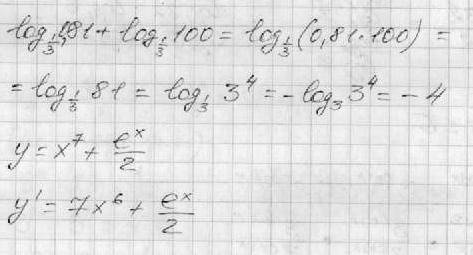 log_{1/3} 0,81 + log_{1/3} 100 = log_{1/3} (0,81·100) =
= log_{1/3} 81 = log_{1/3} 3⁴ = -log₃ 3⁴ = -4
y = x⁷ + eˣ/2
y' = 7x⁶ + eˣ/2